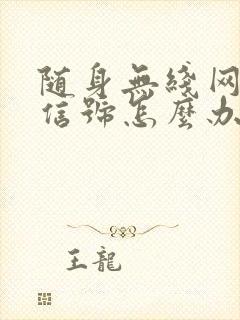 随身無綫网
信號怎麼办
王龍